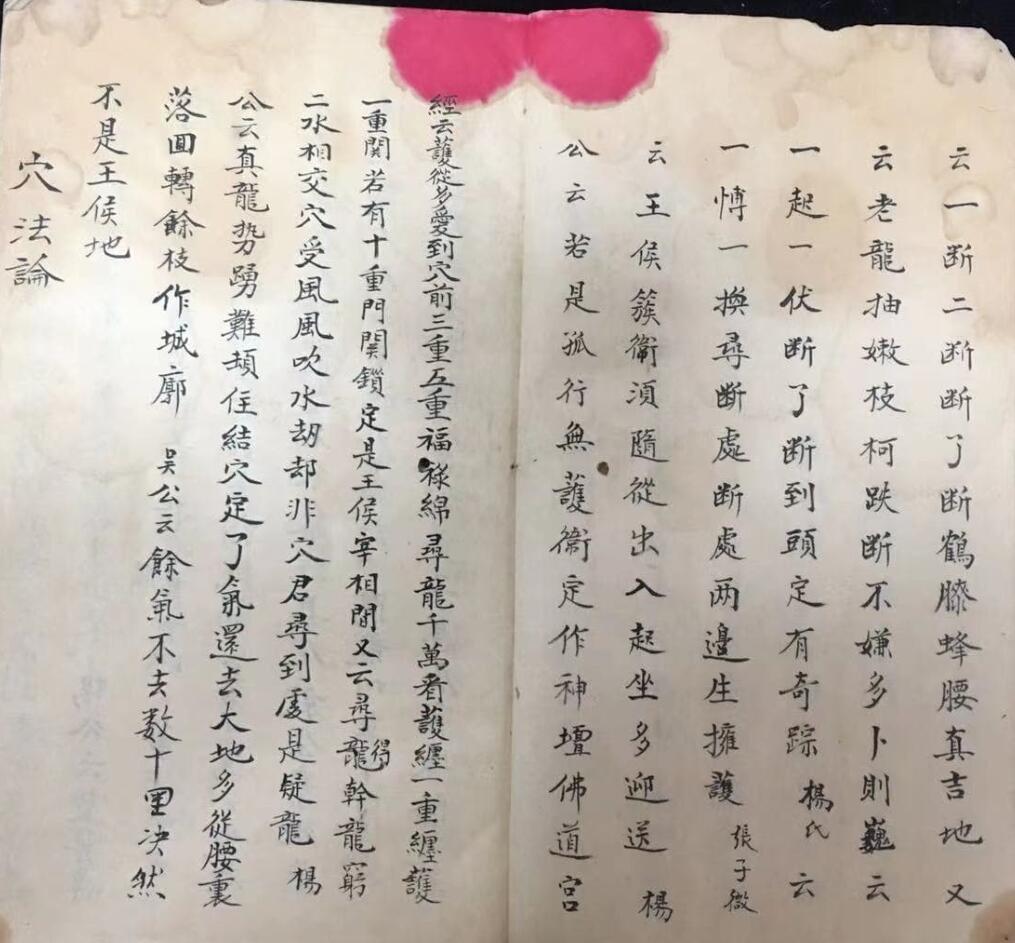 云一断二断断了断鶴膝蜂腰真吉地又
云老龍抽嫩枝柯跌断不嫌多卜則巍云
一起一伏断了断到頭定有奇踪楊氏云
一愽一換尋断處断處两邉生擁護張子微
云王侯簇衞湏隨從出入起坐多迎送楊
公云若是孤行無護衞定作神壇佛道宫
經云護從多愛到穴前三重五重福祿綿尋龍千萬看護纏一重纏護
一重関若有十重門関鎖定是王侯宰相間又云尋龍得幹龍窮
二水相交穴受風風吹水刼却非穴君尋到處是疑龍楊
公云真龍势踴難頓住結穴定了氣還去大地多從腰裏
落囬轉餘枝作城廓吴公云餘氣不去数十里决然
不是王侯地
穴法論